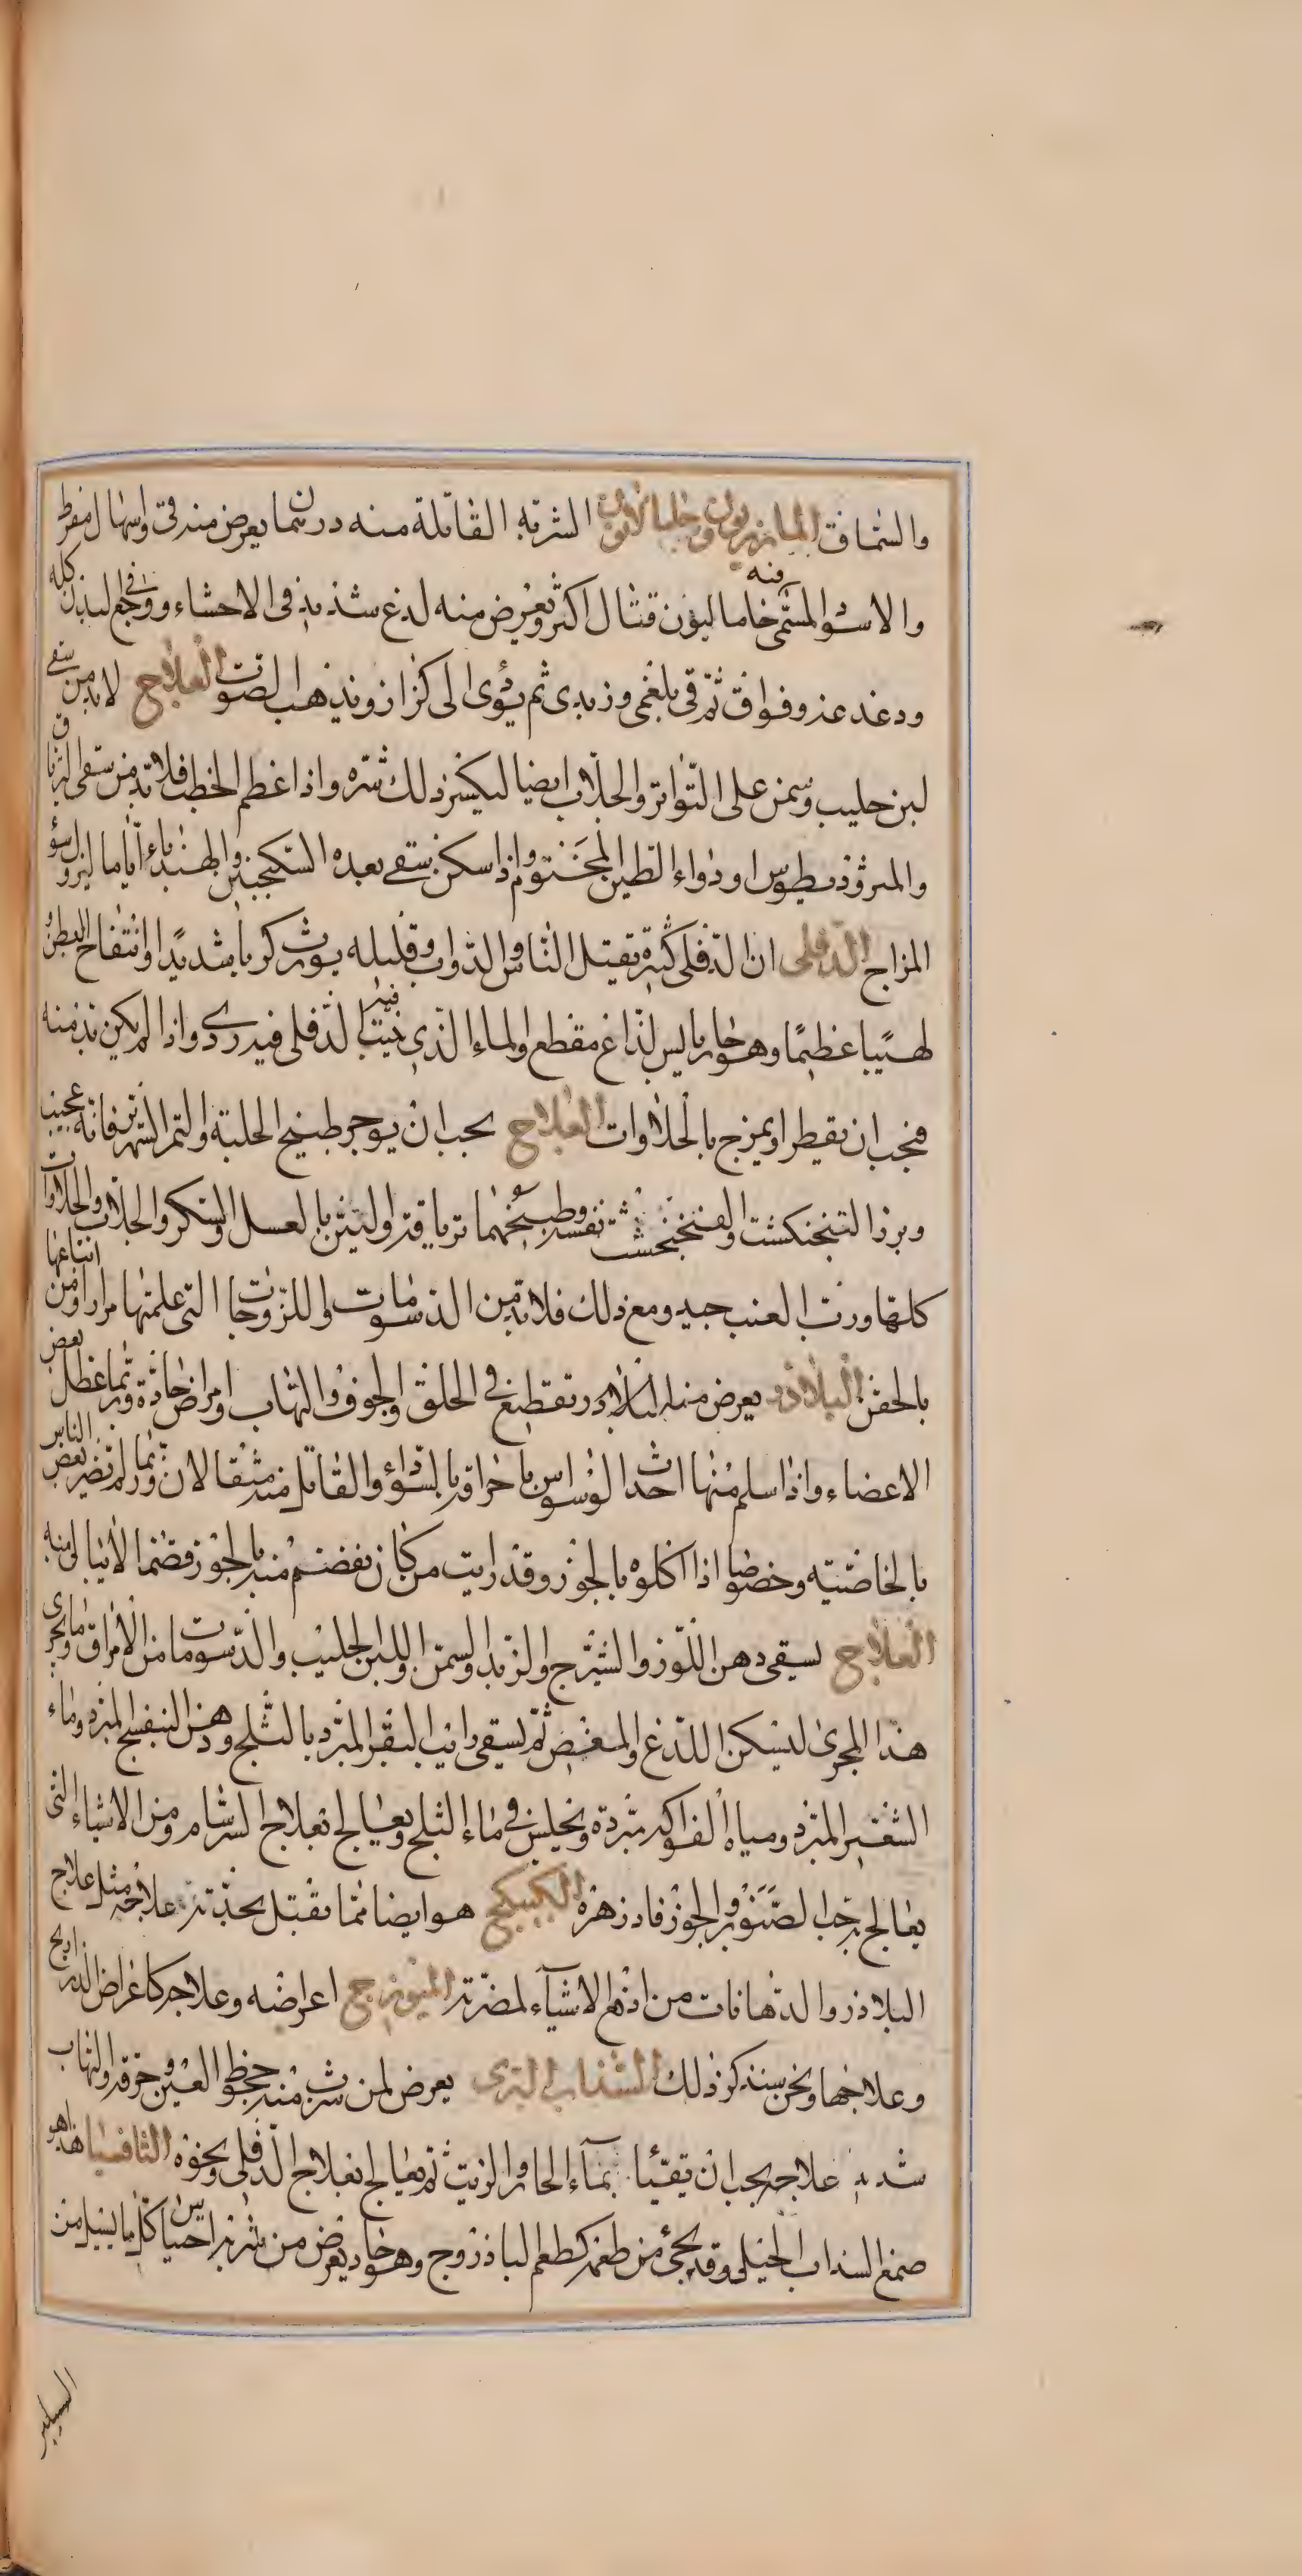 والسماق المازريون وخاماالاون الشربة القاتلة منه درهمان مما يعرض منه قئ واسهال مفرط
والاسود المسمى خاماليون قتال اكثر ويعرض منه لدغ شديد فى الاحشاء ووجع فى البدن كله
ودغدغة وفواق ثم قى بلغمى وزبدى ثم يؤدى الى كزاز ويذهب الصوت العلاج لابد من سقى
لبن حليب وسمن على التواتر والجلاب ايضا ليكسر ذلك شره واذا عظم الخطب فلابد من سقى الترياق
والمثروذيطوس او دواء الطين المختوم واذا سكن سقى بعده السكنجبين والهندباء اياما ليزول سؤ
المزاج الدفلى ان الدفلى كثيره يقتل الناس والدواب وقليله يورث كربا شديدا وانتفاخ البطن و
لهيبا عظيما وهو حار يابس لذاع مقطع والماء الذى ينبت فيه الدفلى فيه ردى واذا لم يكن بد منه
فيجب ان يقطر او يمزج بالحلاوات العلاج يجب ان يوجر طبيخ الحلبة والتمر الشهرين فانه عجيب
وبزر الفنجنكشت والفنجنخشت نفسه وطبيخهما ترياقه والتين بالعسل والسكر والجلاب والحلاوات
كلها ورب العنب جيد ومع ذلك فلابد من الدسومات واللزوجات التى علمتها مرارا ومن اتباعها
بالحقن البلاذر يعرض منه البلاذر تقطيع فى الحلق والجوف والتهاب وامراض حادة وربما عطل بعض
الاعضاء واذا سلم منها احدث الوسواس باحراقه بالسوداء والقاتل منه مثقالان وربما لم تضر بعض الناس
بالخاصية وخصوصا اذا اكلوه بالجوز وقد رايت من كان يقضم منه بالجوز قضما لا يبالى منه
العلاج يسقى دهن اللوز والشيرج والزبد والسمن واللبن الحليب والدسومات من الامراق وما يجرى
هذا المجرى ليسكن اللذع والمغص ثم يسقى رايب البقر المبرد بالثلج ودهن البنفسج المبرد وماء
الشعير المبرد ومياه الفواكه مبردة ويجلس فى ماء الثلج ويعالج بعلاج السرسام ومن الاشياء التى
يعالج به حب الصنوبر والجوز فادزهره الكبيكج هو ايضا مما يقتل بحدته علاجه مثل علاج
البلاذر والدهانات من اذم الاشياء لمضرته الميويزج اعراضه وعلاجه كاعراض الذراريح
وعلاجها ونحن سنذكر ذلك السذاب البرى يعرض لمن شرب منه جحوظ العين وحرقة والتهاب
شديد علاجه يجب ان يتقيأ بماء الحار والزيت ثم يعالج بعلاج الدفلى ونحوه الثافسيا هذا هو
صمغ السذاب الجبلى وقد يجئ من طعمه كطعم الباذروج وهو حاد يعرض من شربه احتباس كل ما يسيل من
السبيل